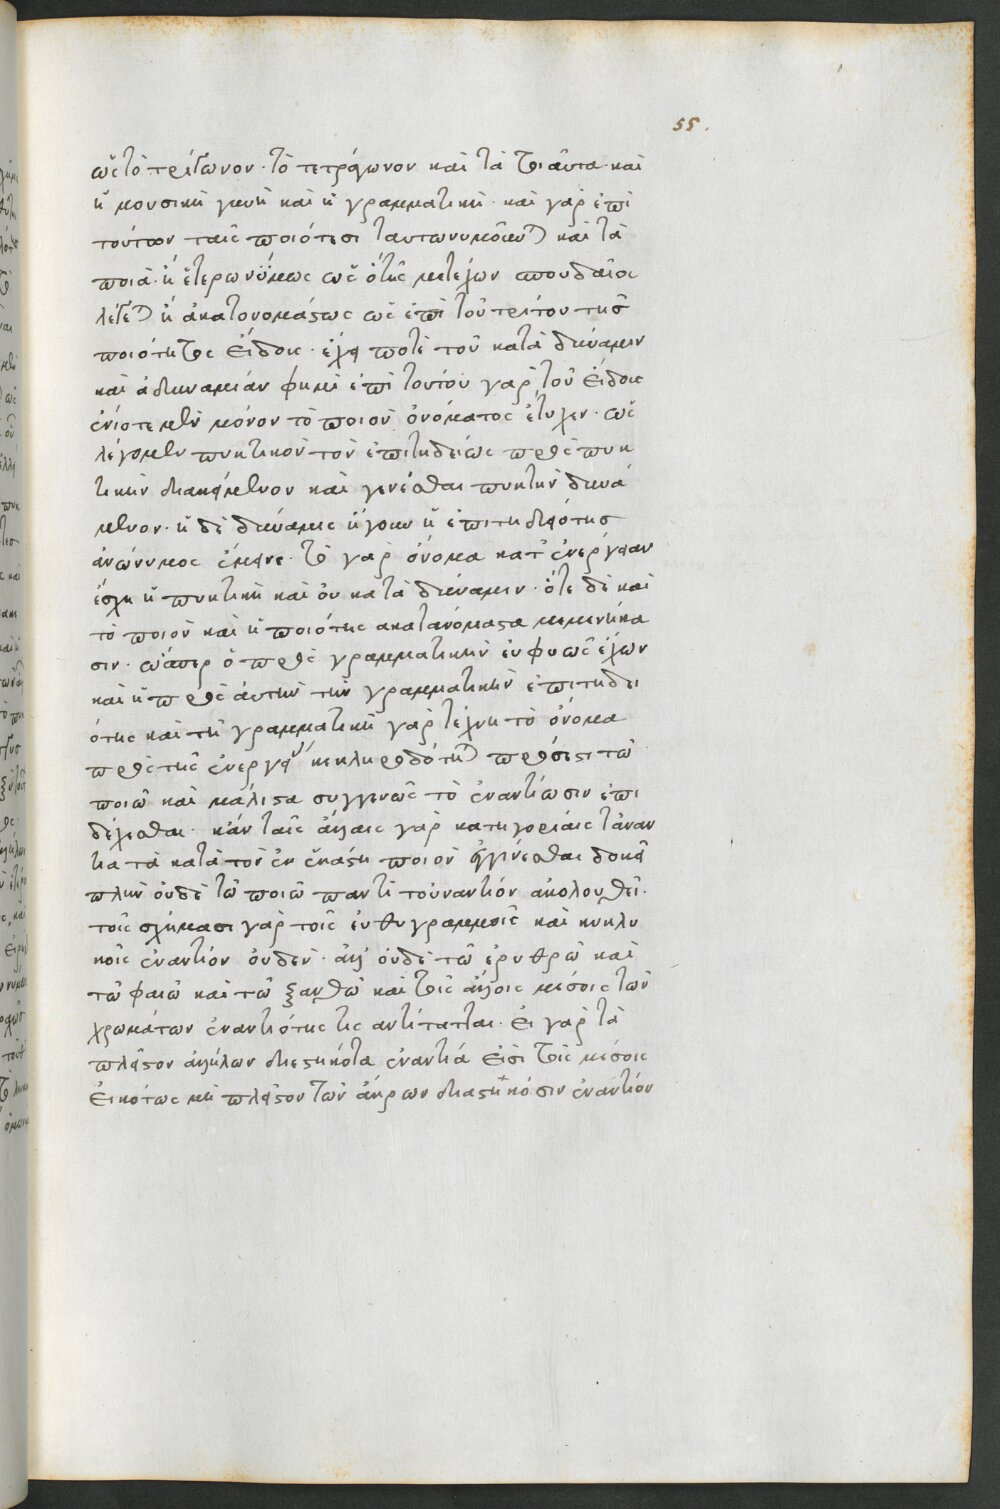 55.
ὡς τὸ τρίγωνον· τὸ τετράγωνον καὶ τὰ τοιαῦτα· καὶ
ἡ μουσικὴ γυνὴ καὶ ἡ γραμματικὴ· καὶ γὰρ ἐπὶ
τούτων ταῖς ποιότεσι ταυτωνυμοῦνται καὶ τὰ
ποιά· ἢ ἑτερωνύμως ὡς ὁ τῆς μετέχων σπουδαῖος
λέγεται ἢ ἀκατονομάστως ὡς ἐπὶ τοῦ τρίτου τῆς
ποιότητος εἴδους· ἔχει ποτὲ τοῦ κατὰ δύναμιν
καὶ ἀδυναμίαν φημὶ ἐπὶ τούτου γὰρ τοῦ εἴδους
ἐνίοτε μὲν μόνον τὸ ποιὸν ὀνόματος ἔτυχεν· ὡς
λέγομεν πυκτικὸν τὸν ἐπιτηδείως πρὸς πυκ
τικὴν διακείμενον καὶ γενέσθαι πυκτὴν δυνά
μενον· ἡ δὲ δύναμις ἤγουν ἡ ἐπιτηδειότης
ἀνώνυμος ἔμεινε· τὸ γὰρ ὄνομα κατ' ἐνέργειαν
ἔσχη ἡ πυκτικὴ καὶ οὐ κατὰ δύναμιν· ὁτὲ δὲ καὶ
τὸ ποιὸν καὶ ἡ ποιότης ἀκατανόμαστα μεμενήκα
σιν· ὥσπερ ὁ πρὸς γραμματικὴν εὐφυῶς ἔχων
καὶ ἡ πρὸς αὐτὴν τὴν γραμματικὴν ἐπιτηδει
ότης καὶ τῇ γραμματικῇ γὰρ τέχνη τὸ ὄνομα
πρὸς τῆς ἐνεργείας κεκληροδότηται πρόσεστι τῶ
ποιῶ καὶ μάλιστα συγγενῶς τὸ ἐναντίωσιν ἐπι
δέχεσθαι· κἀν ταῖς ἄλλαις γὰρ κατηγορίαις τἀναν
τία τὰ κατὰ τὸν ἐν ἑκάστη ποιὸν ἐγγίνεσθαι δοκεῖ
πλὴν οὐδὲ τῶ ποιῶ παντὶ τοὐναντίον ἀκολουθεῖ·
τοῖς σχήμασι γὰρ τοῖς εὐθυγράμμοις καὶ κυκλι
κοῖς ἐναντίον οὐδέν· ἀλλ' οὐδὲ τῶ ἐρυθρῶ καὶ
τῶ φαιῶ καὶ τῶ ξανθῶ καὶ τοῖς ἄλλοις μέσοις τῶν
χρωμάτων ἐναντιότης τις ἀντίτατται. εἰ γὰρ τὰ
πλεῖστον ἀλλήλων διεστηκότα ἐναντία εἰσὶ τοῖς μέσοις
εἰκότως μὴ πλεῖστον τῶν ἄκρων διαστήκόσιν ἐναντίον